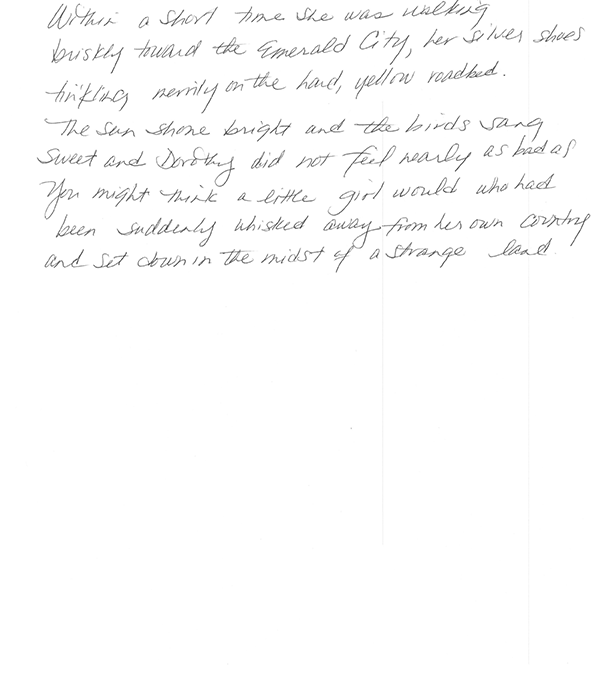 Within a short time she was walking
briskly toward the Emerald City, her silver shoes
tinkling merrily on the hard, yellow roadbed.
The sun shone bright and the birds sang
sweet and Dorothy did not feel nearly as bad as
you might think a little girl would who had
been suddenly whisked away from her own country
and set down in the midst of a strange land